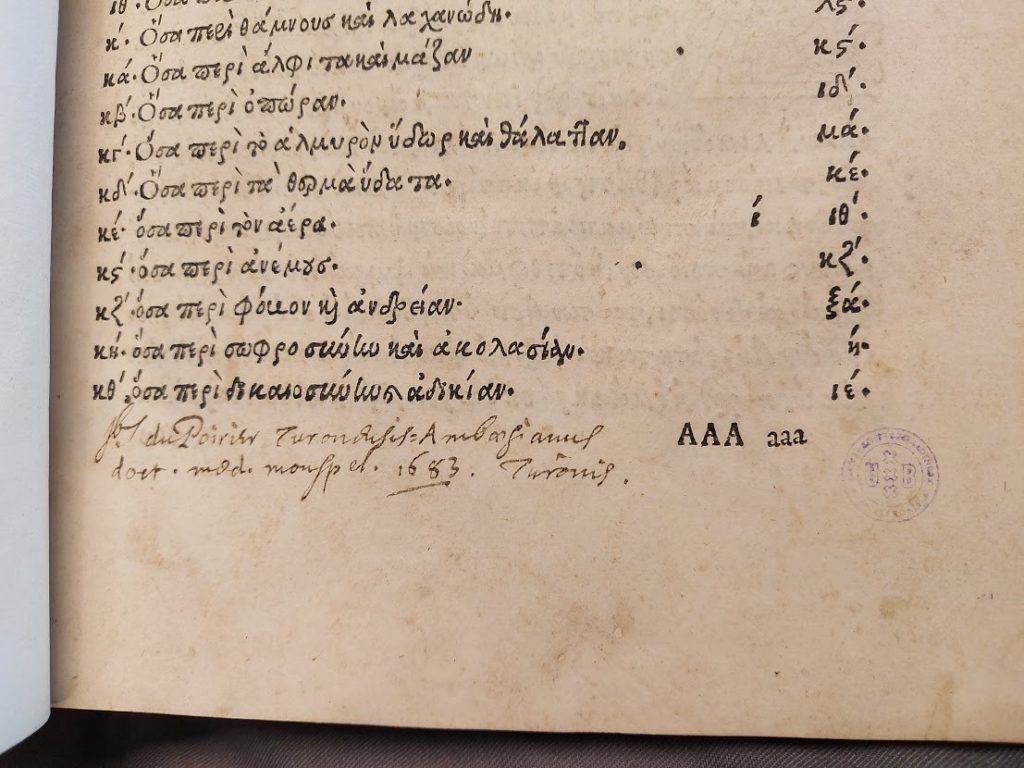 ιθ´. Ὅσα
κ´. Ὅσα περὶ θάμνους καὶ λαχανώδη. λς´.
κά. Ὅσα περὶ ἄλφιτα καὶ μάζαν κς´.
κβ´. Ὅσα περὶ ὀπώραν. ιδ´.
κγ´. Ὅσα περὶ τὸ ἁλμυρὸν ὕδωρ καὶ θάλατταν. μά.
κδ´. Ὅσα περὶ τὰ θερμὰ ὕδατα. κέ.
κέ. ὅσα περὶ τὸν ἀέρα. ί ιθ´.
κς´. ὅσα περὶ ἀνέμους. κζ´.
κζ´. ὅσα περὶ φόβον κὶ ἀνδρείαν. ξά.
κή. ὅσα περὶ σωφροσύνην καὶ ἀκολασίαν. ή.
κθ´. ὅσα περὶ δικαιοσύνην κὶ ἀδικίαν. ιέ.
du Poirier Turonensis-Ambasianus AAA aaa
doct. med. monspel. 1683. Turonis.